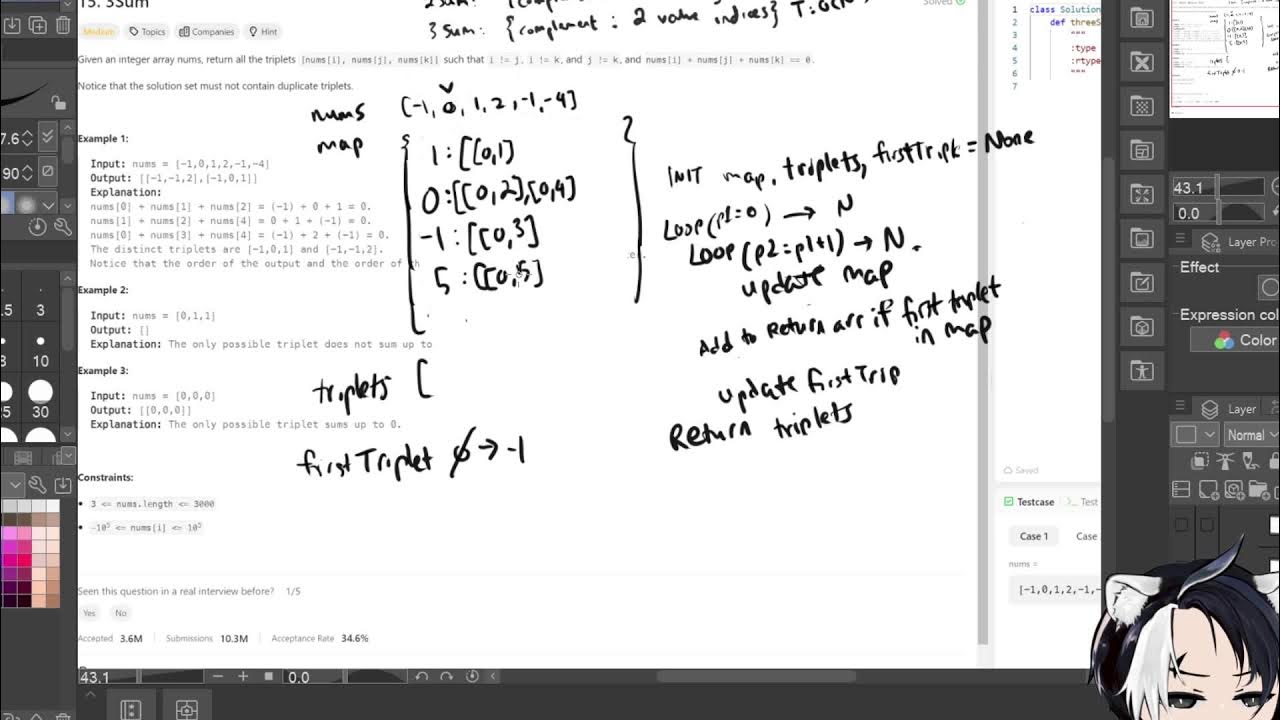 15. 3Sum
Solved
3 Sum: {complement : 2 value indices}
Medium
Topics
Companies
Hint
Given an integer array nums, return all the triplets [nums[i], nums[j], nums[k]] such that i != j, i != k, and j != k, and nums[i] + nums[j] + nums[k] == 0.
Notice that the solution set must not contain duplicate triplets.
nums [-1, 0, 1, 2, -1, -4]
map {
1 : [[0,1]
0 : [[0,2],[0,4]
-1 : [[0,3]
5 : [[0,5]
}
triplets [
firstTriplet ∅ → -1
INIT map, triplets, firstTriplet = None
Loop(p1=0) → N
Loop(p2=p1+1) → N.
update map
Add to Return arr if first triplet
in map
update firstTrip
Return triplets
Example 1:
Input: nums = [-1,0,1,2,-1,-4]
Output: [[-1,-1,2],[-1,0,1]]
Explanation:
nums[0] + nums[1] + nums[2] = (-1) + 0 + 1 = 0.
nums[1] + nums[2] + nums[4] = 0 + 1 + (-1) = 0.
nums[0] + nums[3] + nums[4] = (-1) + 2 + (-1) = 0.
The distinct triplets are [-1,0,1] and [-1,-1,2].
Notice that the order of the output and the order of th
Example 2:
Input: nums = [0,1,1]
Output: []
Explanation: The only possible triplet does not sum up to
Example 3:
Input: nums = [0,0,0]
Output: [[0,0,0]]
Explanation: The only possible triplet sums up to 0.
Constraints:
3 <= nums.length <= 3000
-10⁵ <= nums[i] <= 10⁵
Seen this question in a real interview before? 1/5
Yes No
Accepted 3.6M Submissions 10.3M Acceptance Rate 34.6%
43.1 0.0
7.6
90
.5 3
8 10
25 30
1 class Solution
2 def threeS
3 """
4 :type
5 :rtype
6 """
7
Saved
Testcase
Test
Case 1
Case
nums =
[-1,0,1,2,-1,-
43.1
0.0
Layer Pro
Effect
Expression col
Color
Layer
Normal